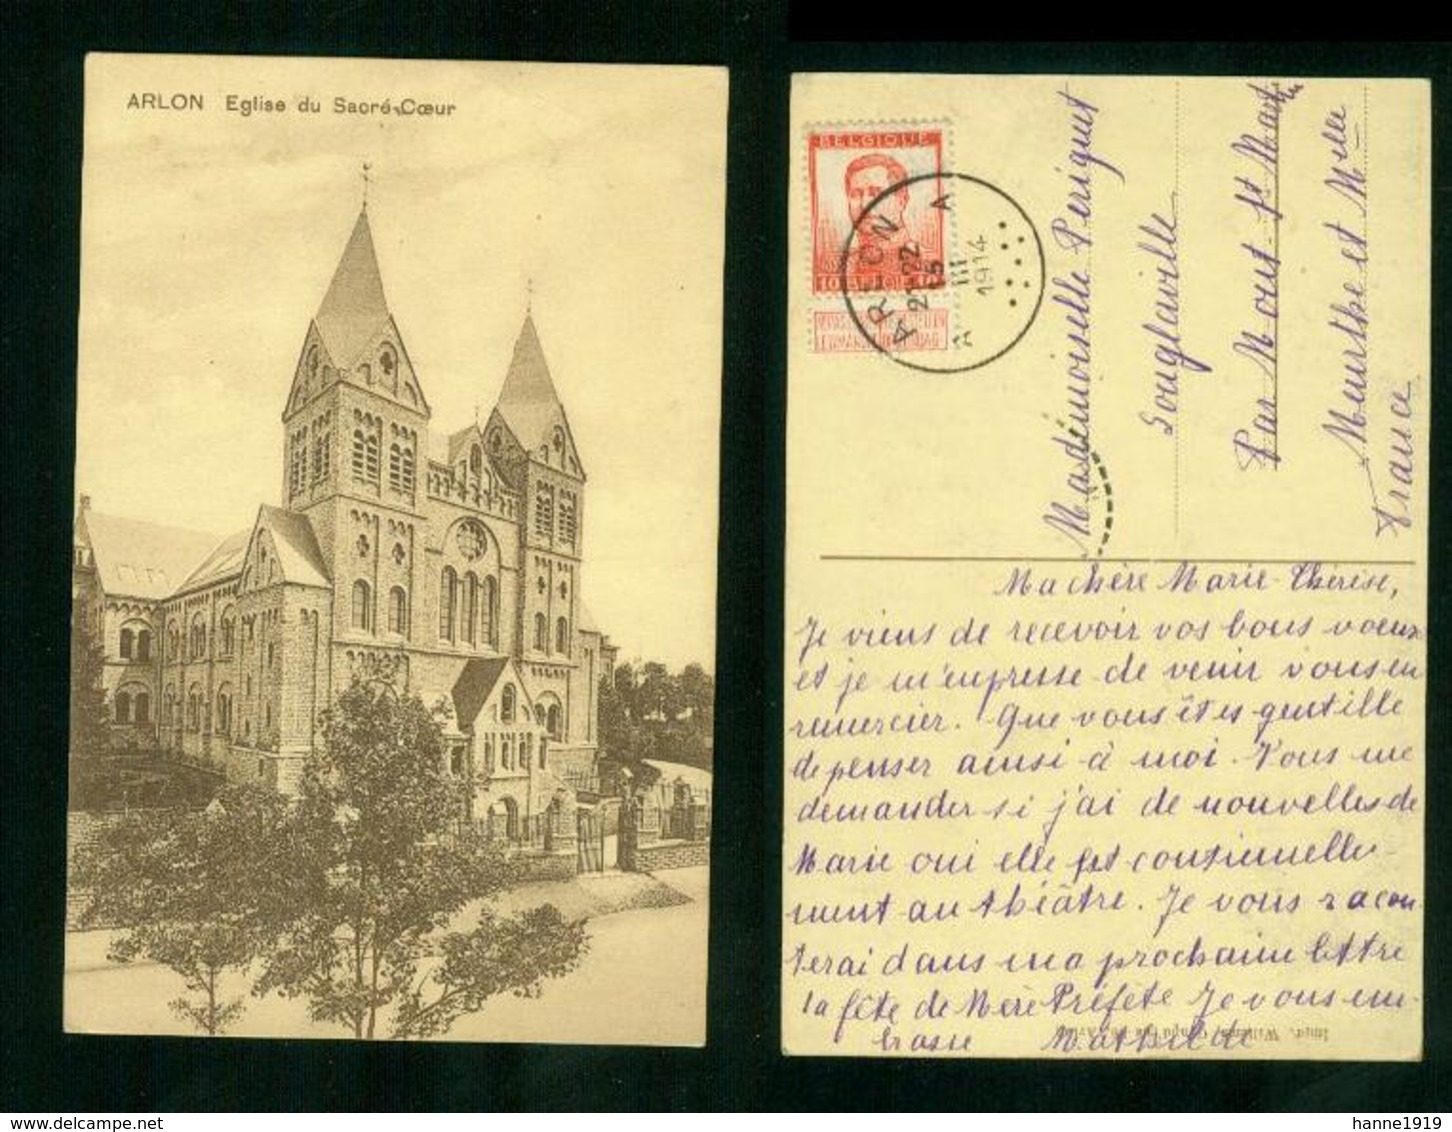 ARLON Eglise du Sacré-Cœur
BELGIQUE
10 BELGIË 10
ARLON
21-22
5
III
1914
A A
Mademoiselle Periquet
Souglaville
Par Mont St Martin
Meurthe et Mselle
France
Ma chère Marie-Thérèse,
Je viens de recevoir vos bons voeux
et je m'empresse de venir vous en
remercier. Que vous êtes gentille
de penser ainsi à moi. Vous me
demander si j'ai de nouvelles de
Marie oui elle est continuelle-
ment au théâtre. Je vous racon-
terai dans ma prochaine lettre
la fête de Mère Préfète Je vous em-
brasse Mathilde
hanne1919